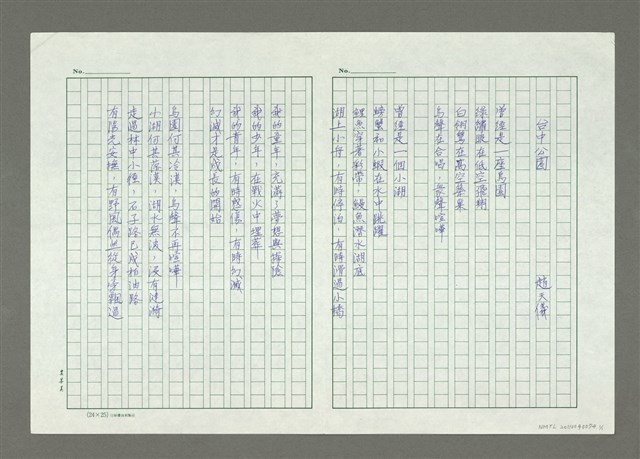 No.
台中公園
趙天儀
曾經是一座鳥園
綠繡眼在低空飛翔
白樹鷺在高空築巢
鳥聲在合唱，蟲聲喧嘩
曾經是一個小湖
螃蟹和小蝦在水中跳躍
鯉魚穿著彩帶，鰻魚潛水湖底
湖上小舟，有時停泊，有時滑過小橋
No.
我的童年，充滿了夢想與探險
我的少年，在戰火中埋葬
我的青年，有時悲傷，有時幻滅
幻滅才是成長的開始
鳥園何其冷漠，鳥聲不再喧嘩
小湖何其落漠，湖水無波，沒有漣漪
走過林中小徑，石子路已成柏油路
有陽光安撫，有野風偶然從身旁飄過
(24×25)